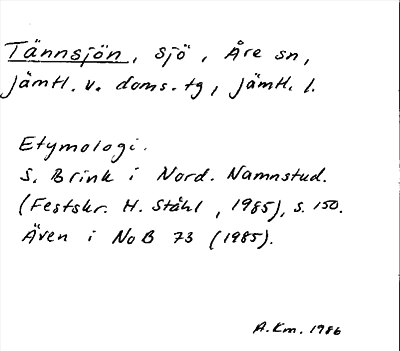 Tännsjön, sjö, Åre sn,
Jämtl. v. doms.tg, Jämtl. l.
Etymologi.
S. Brink i Nord. Namnstud.
(Festskr. H. Ståhl, 1985), s. 150.
Även i NoB 73 (1985).
A.Km. 1986